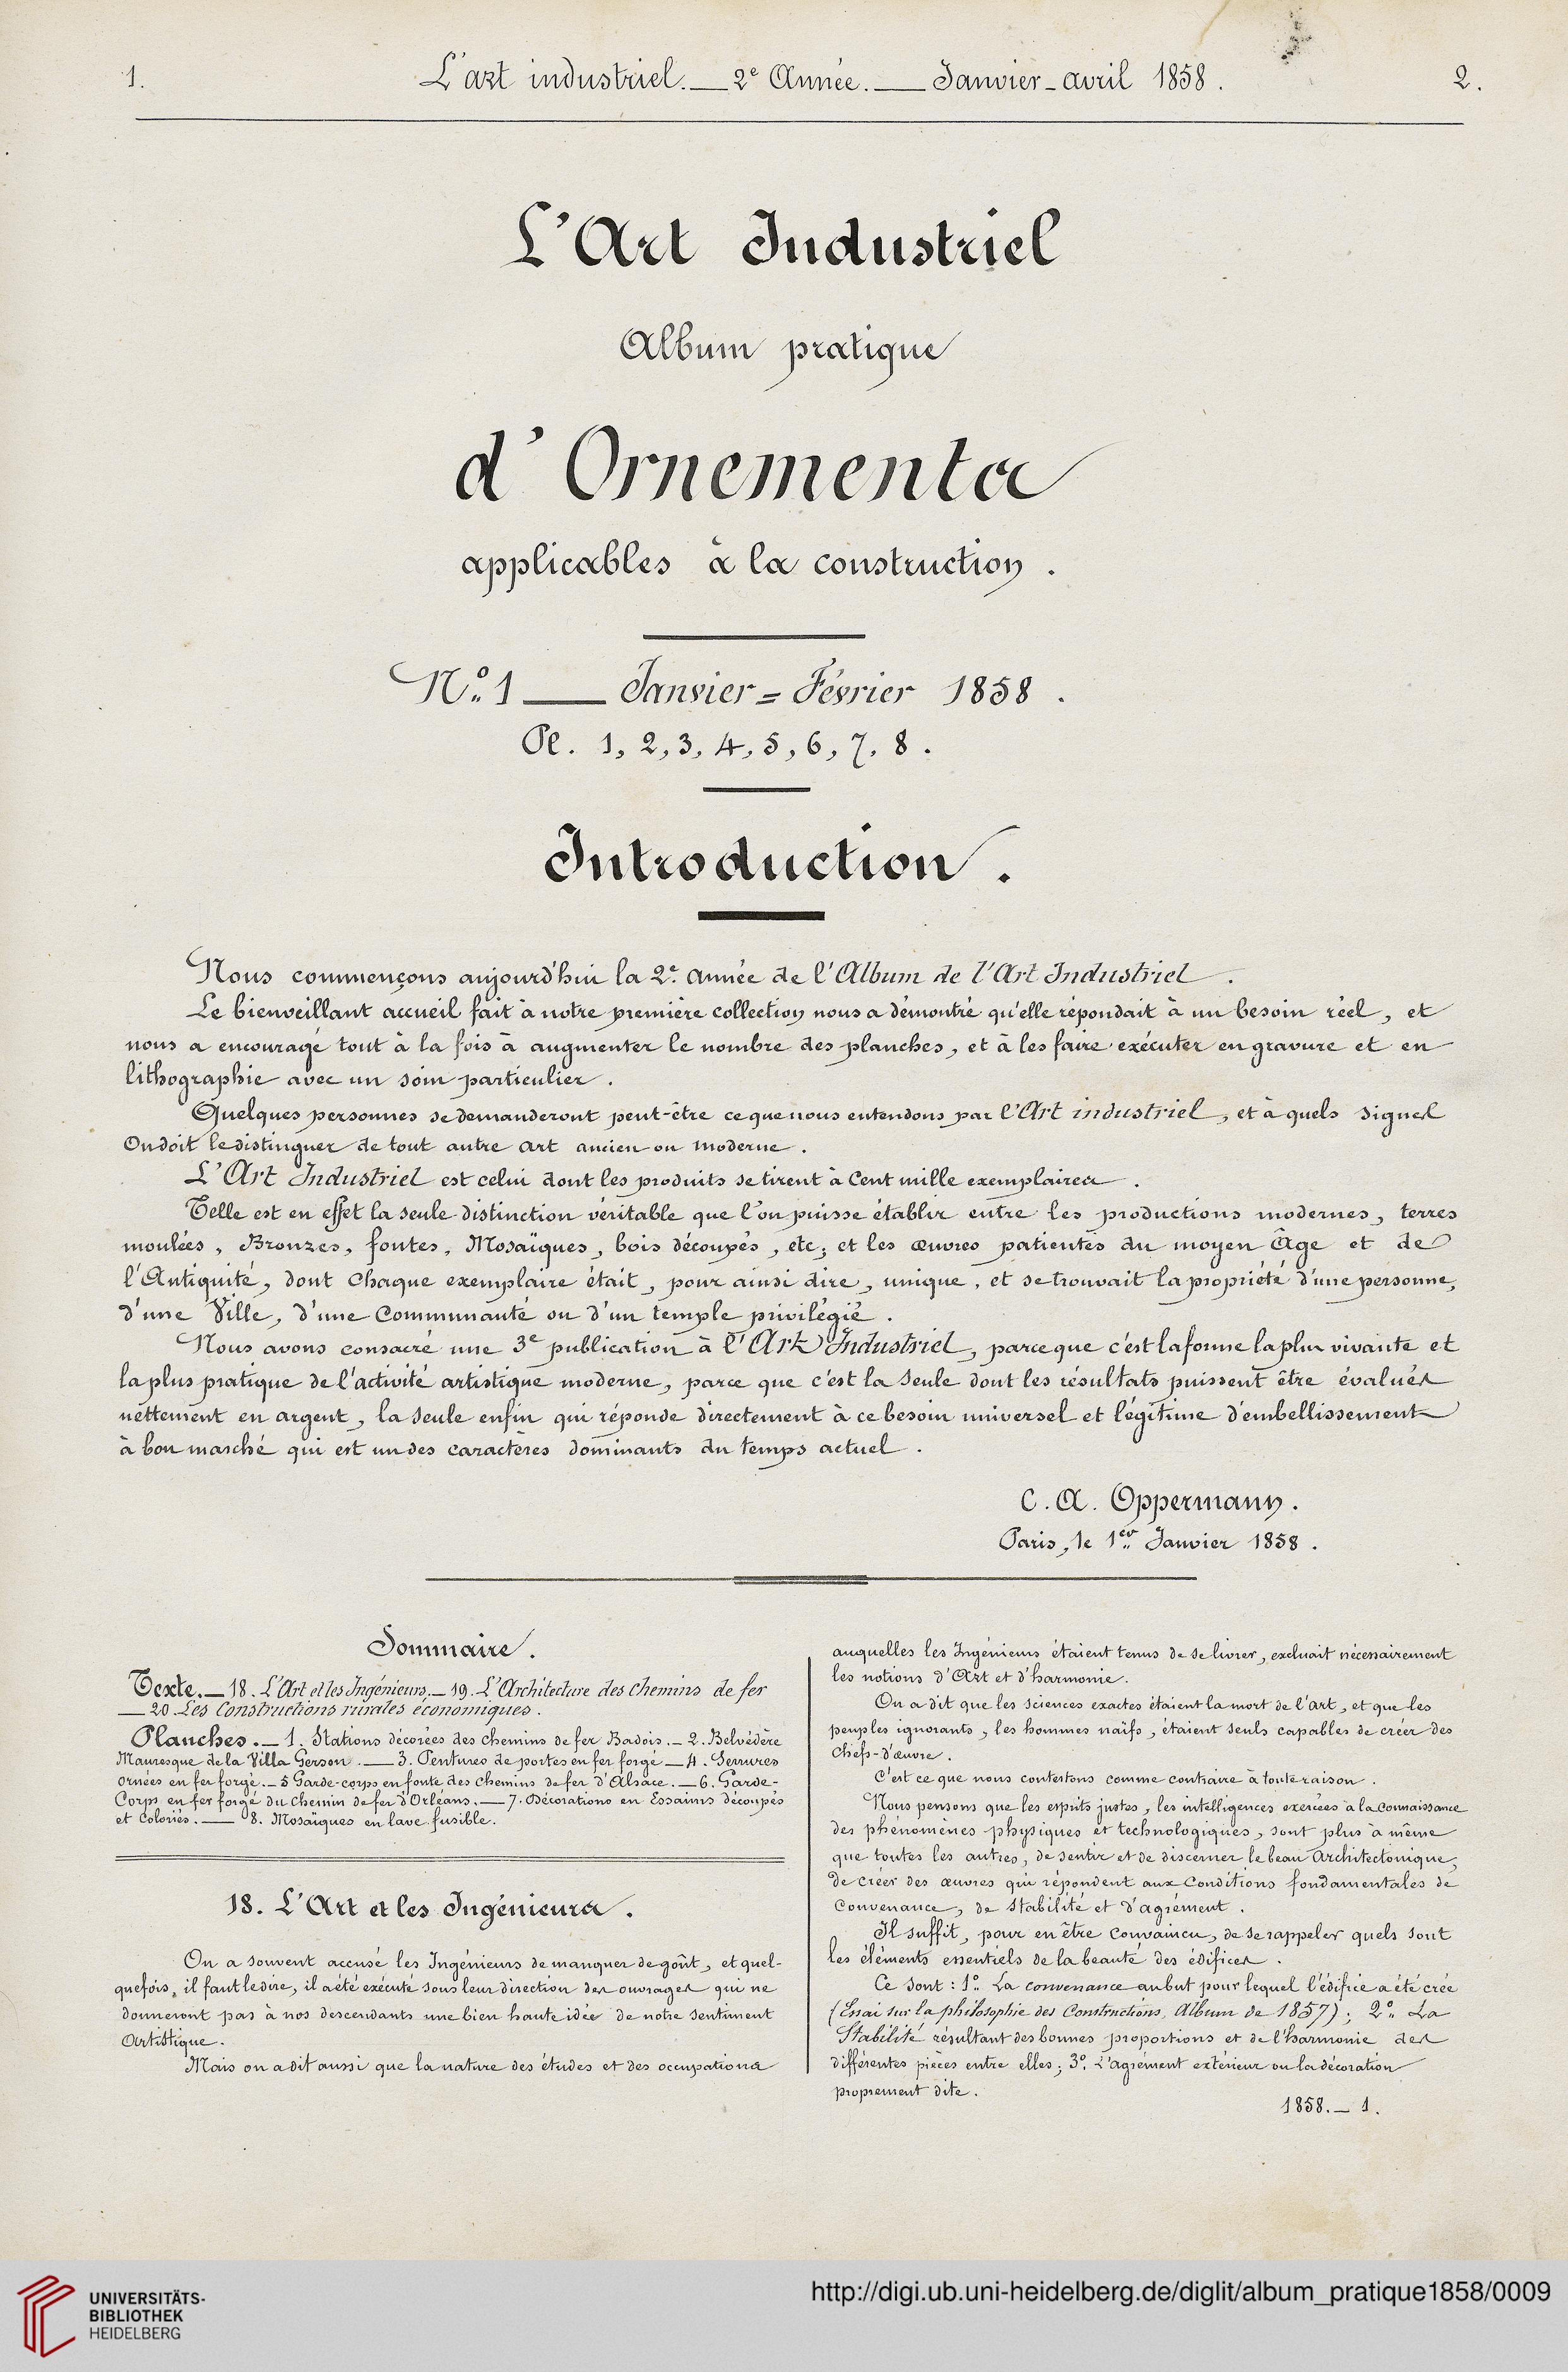 1.
L'art industriel. — 2e Année. — Janvier-avril 1858.
2.
L'Art Industriel
Album pratique
d'Ornements
applicables à la construction.
No. 1 — Janvier = Février 1858.
Pl. 1, 2, 3, 4, 5, 6, 7, 8.
Introduction.
Nous commençons aujourd'hui la 2e. année de l'Album de l'Art Industriel.
Le bienveillant accueil fait à notre première collection nous a démontré qu'elle répondait à un besoin réel, et
nous a encouragé tout à la fois à augmenter le nombre des planches, et à les faire exécuter en gravure et en
lithographie avec un soin particulier.
Quelques personnes se demanderont peut-être ce que nous entendons par l'Art industriel, et à quels signes
On doit le distinguer de tout autre art ancien ou moderne.
L'Art Industriel est celui dont les produits se tirent à Cent mille exemplaires.
Telle est en effet la seule distinction véritable que l'on puisse établir entre les productions modernes, terres
moulées, Bronzes, fontes, Mosaïques, bois découpés, etc; et les œuvres patientes du moyen Âge et de
l'Antiquité, dont Chaque exemplaire était, pour ainsi dire, unique, et se trouvait la propriété d'une personne,
d'une Ville, d'une Communauté ou d'un temple privilégié.
Nous avons consacré une 3e publication à l'Art Industriel, parceque c'est la forme la plus vivante et
la plus pratique de l'activité artistique moderne, parce que c'est la Seule dont les résultats puissent être évalués
nettement en argent, la Seule enfin qui réponde directement à ce besoin universel et légitime d'embellissement
à bon marché qui est un des caractères dominants du temps actuel.
C. A. Oppermann.
Paris, le 1er Janvier 1858.
Sommaire.
Texte. — 18. L'Art et les Ingénieurs. — 19. L'Architecture des Chemins de fer
— 20. Les Constructions rurales économiques.
Planches. — 1. Stations décorées des Chemins de fer Badois. — 2. Belvédère
Mauresque de la Villa Gerson. — 3. Pentures de portes en fer forgé — 4. Serrures
ornées en fer forgé. — 5 Garde-corps en fonte des Chemins de fer d'Alsace. — 6. Garde-
Corps en fer forgé du Chemin de fer d'Orléans. — 7. Décorations en Essaims découpés
et Coloriés. — 8. Mosaïques en lave fusible.
18. L'Art et les Ingénieurs.
On a souvent accusé les Ingénieurs de manquer de goût, et quel-
quefois, il faut le dire, il a été exécuté sous leur direction des ouvrages qui ne
donneront pas à nos descendants une bien haute idée de notre sentiment
Artistique.
Mais on a dit aussi que la nature des études et des occupations
auquelles les Ingénieurs étaient tenus de se livrer, excluait nécessairement
les notions d'Art et d'harmonie.
On a dit que les sciences exactes étaient la mort de l'art, et que les
peuples ignorants, les hommes naïfs, étaient seuls capables de créer des
Chefs-d'œuvre.
C'est ce que nous contestons comme contraire à toute raison.
Nous pensons que les esprits justes, les intelligences exercées à la Connaissance
des phénomènes physiques et technologiques, sont plus à même
que toutes les autres, de sentir et de discerner le beau Architectonique,
de créer des œuvres qui répondent aux Conditions fondamentales de
Convenance, de Stabilité et d'agrément.
Il suffit, pour en être Convaincu, de se rappeler quels sont
les éléments essentiels de la beauté des édifices.
Ce sont : 1o. La convenance au but pour lequel l'édifice a été crée
(Essai sur la philosophie des Constructions, Album de 1857); 2o. La
Stabilité résultant des bonnes proportions et de l'harmonie des
différentes pièces entre elles; 3o. L'agrément extérieur ou la décoration
proprement dite.
1858. — 1.
UNIVERSITÄTS-
BIBLIOTHEK
HEIDELBERG
http://digi.ub.uni-heidelberg.de/diglit/album_pratique1858/0009